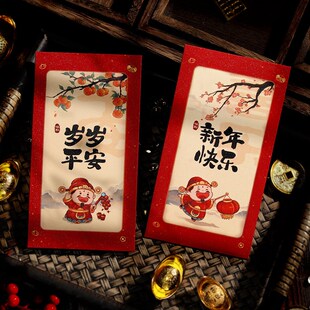 岁岁
平安
新年
快乐